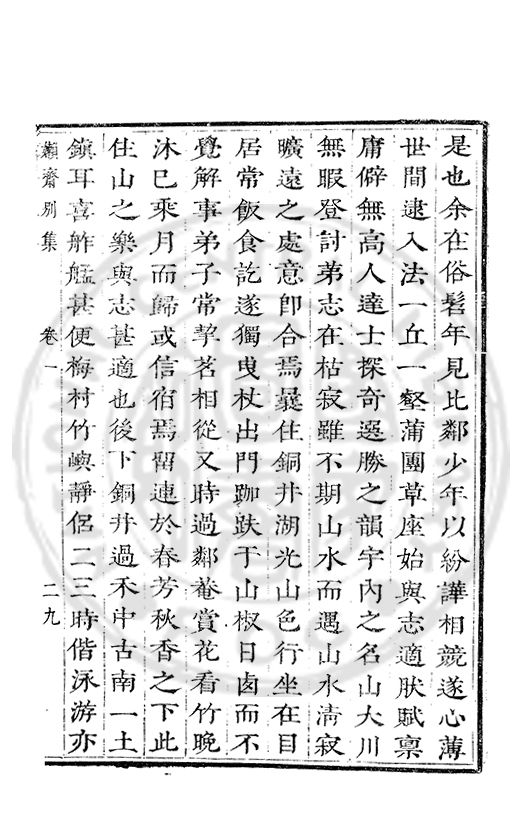 是也余在俗髫年見比鄰少年以紛譁相競遂心薄
世間逮入法一丘一壑蒲團草座始與志適肰賦稟
庸僻無高人達士探奇選勝之韻宇內之名山大川
無暇登討弟志在枯寂雖不期山水而遇山水淸寂
曠遠之處意卽合焉曩住銅井湖光山色行坐在目
居常飯食訖遂獨曳杖出門跏趺于山椒日卤而不
覺解事弟子常挈茗相從又時過鄰菴賞花看竹晚
沐巳乘月而歸或信宿焉畱連於春芳秋香之下此
住山之樂與志甚適也後下銅井過禾中古南一土
鎭耳喜舴艋甚便梅村竹嶼靜侶二三時偕泳游亦
顓齋別集 卷一 二九